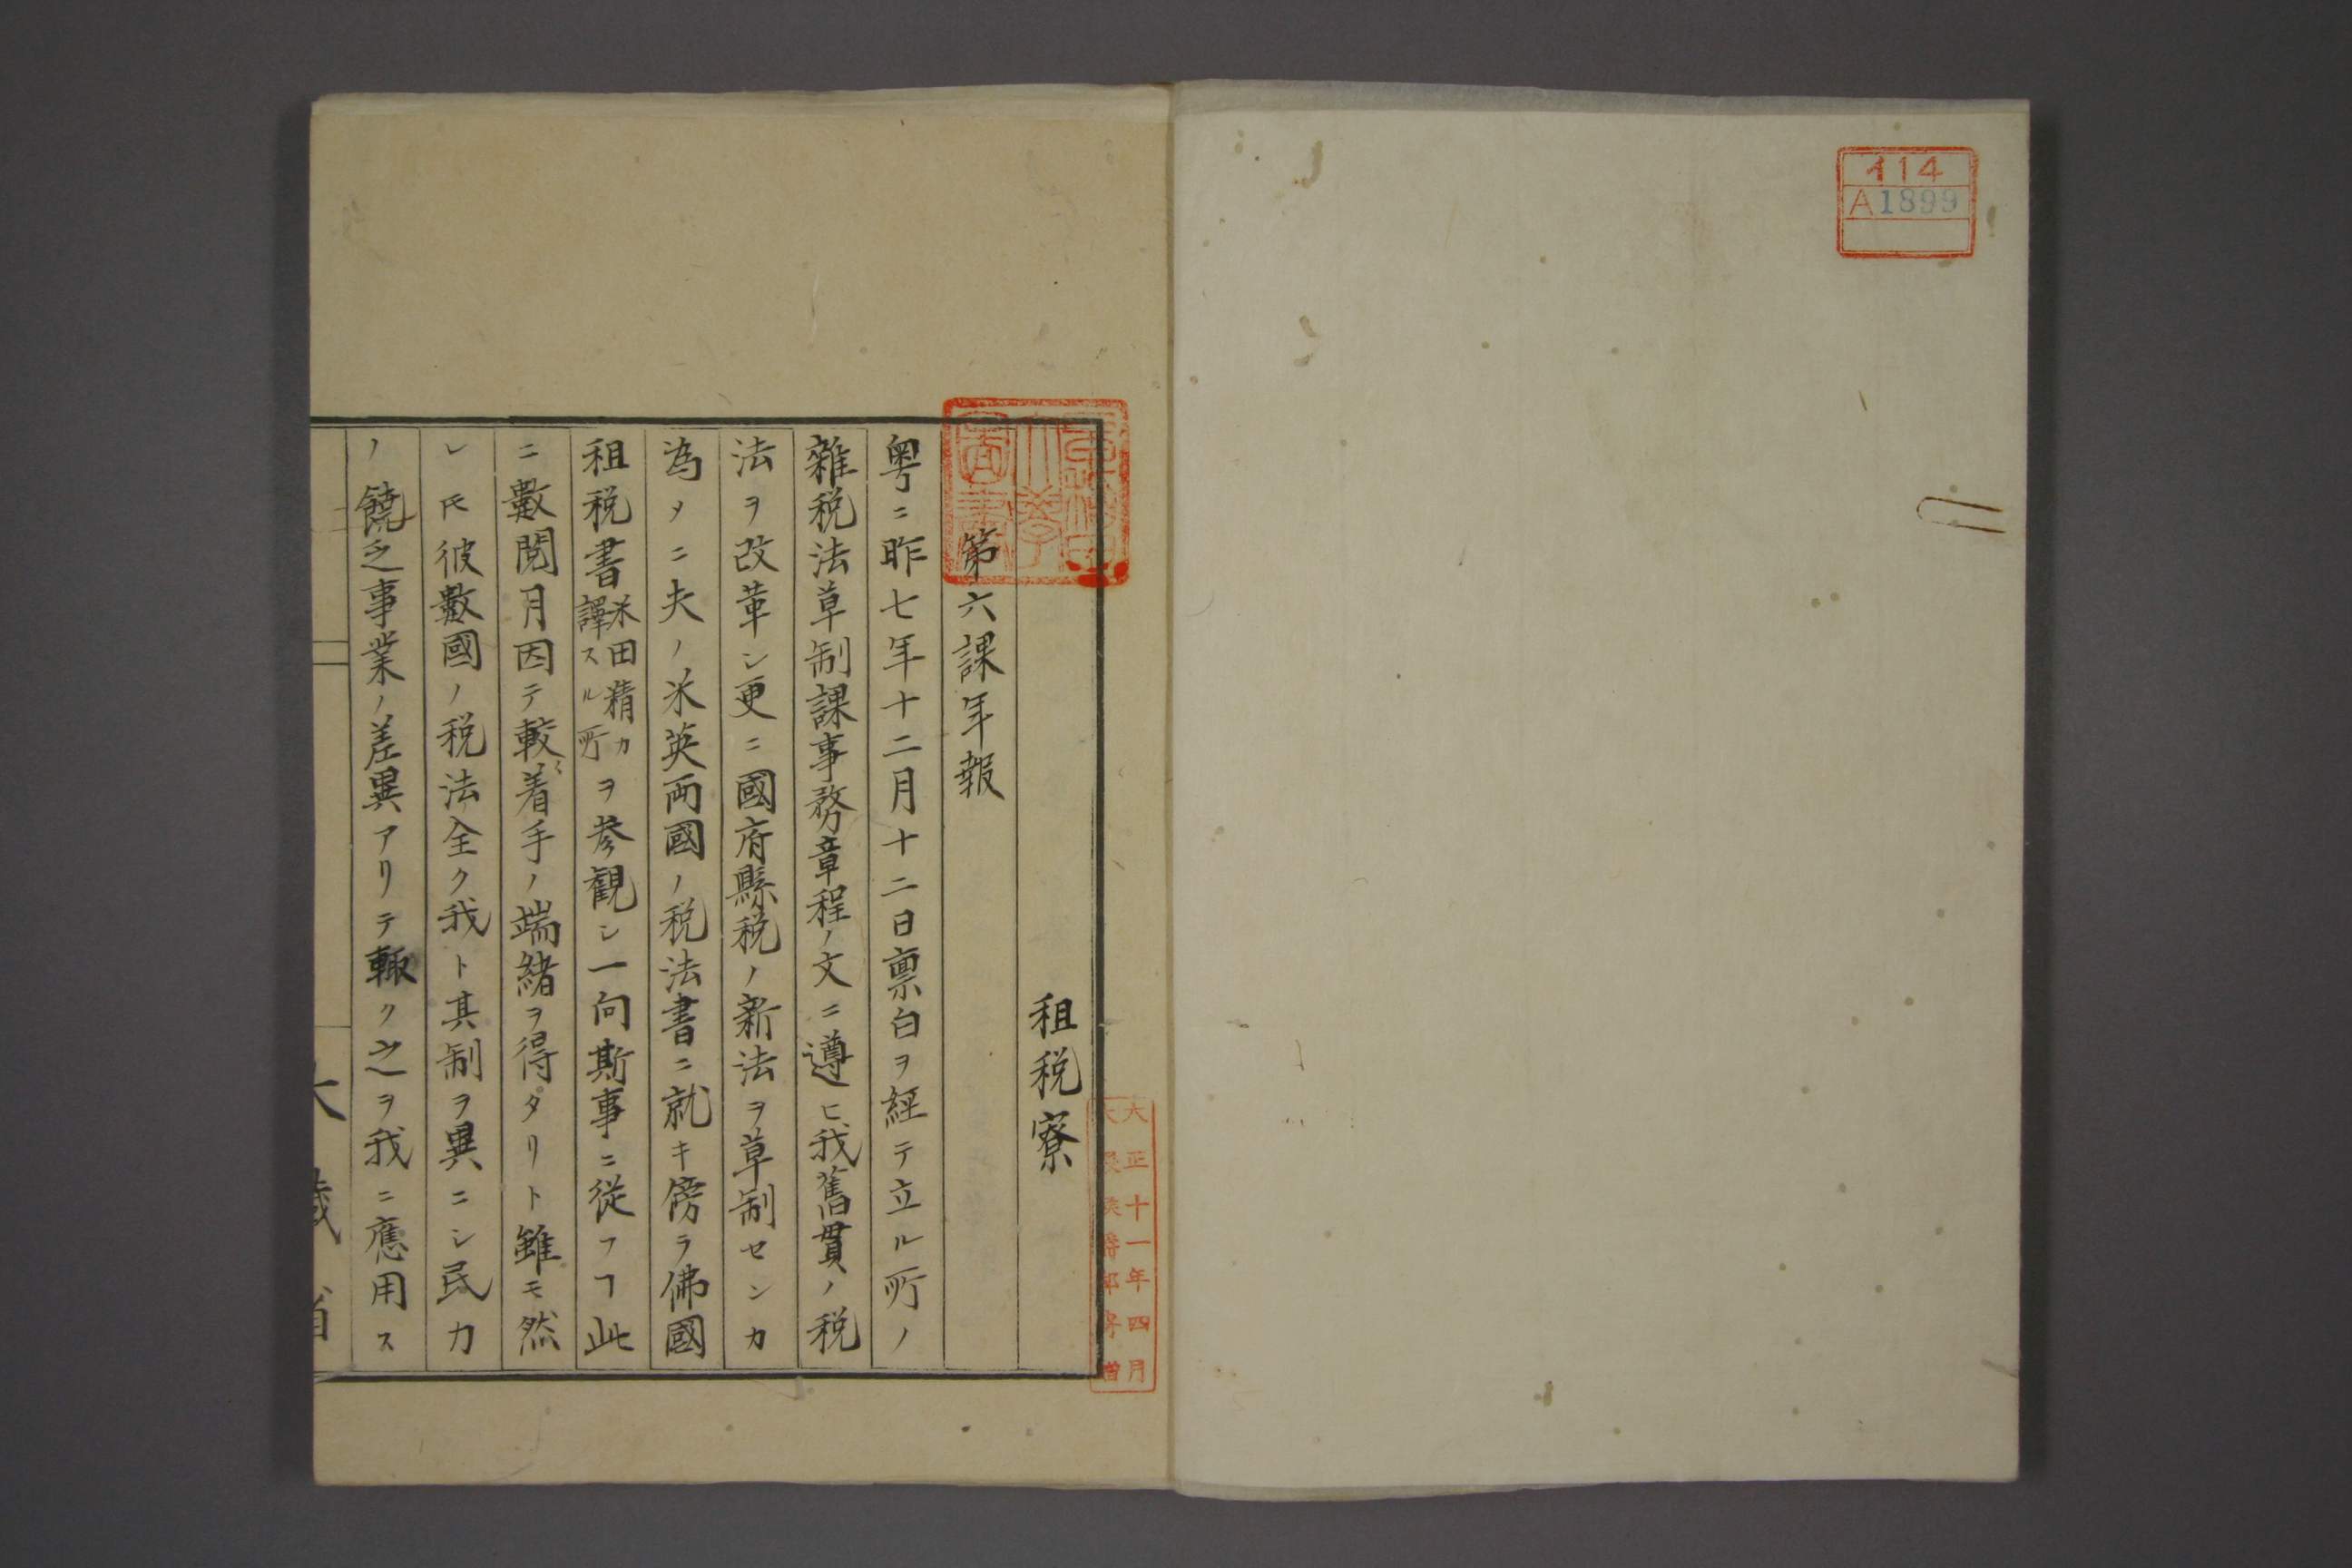 イ14
A1899
租税寮
第六課年報
粤ニ昨七年十二月十二日禀白ヲ経テ立ル所ノ
雜税法草制課事務章程ノ文ニ遵ヒ我舊貫ノ税
法ヲ改革シ更ニ國府縣税ノ新法ヲ草制センカ
為メニ夫ノ米英両國ノ税法書ニ就キ傍ラ佛國
租税書米田精カ譯スル所ヲ参觀シ一向斯事ニ從フヿ此
ニ數閲月因テ較〻着手ノ端緒ヲ得タリト雖モ然
レ𪜈彼數國ノ税法全ク我ト其制ヲ異ニシ民力
ノ饒乏事業ノ差異アリテ輙ク之ヲ我ニ應用ス
大藏省
大正十一年四月